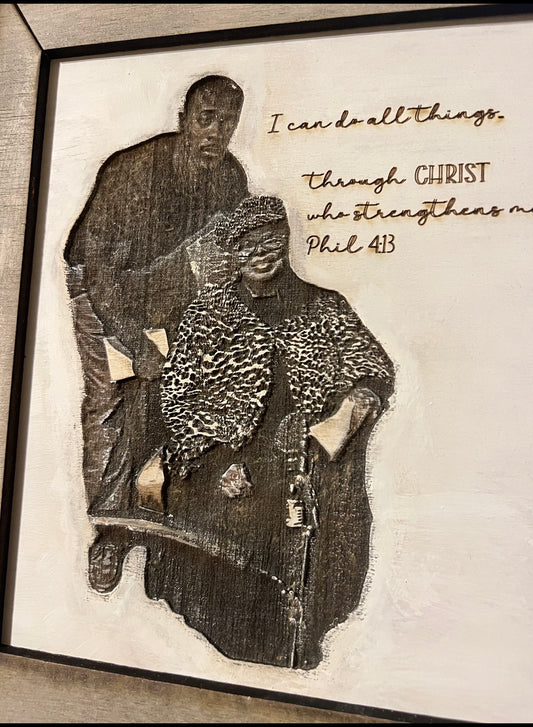 I can do all things.
through CHRIST
who strengthens m
Phil 4:13